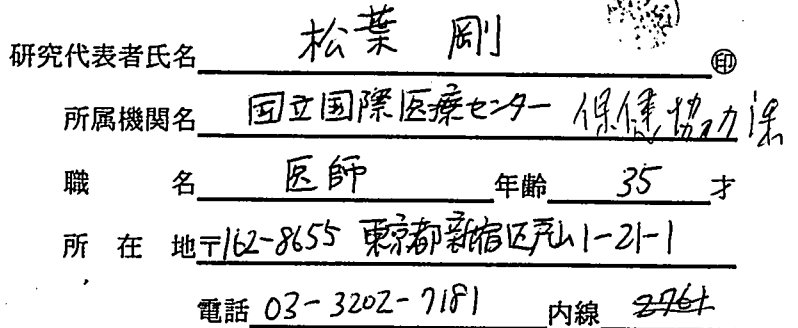 研究代表者氏名 松葉 剛 ㊞
所属機関名 国立国際医療センター 保健協力課
職 名 医師 年齢 35 才
所 在 地 〒162-8655 東京都新宿区戸山1-21-1
電話 03-3202-7181 内線